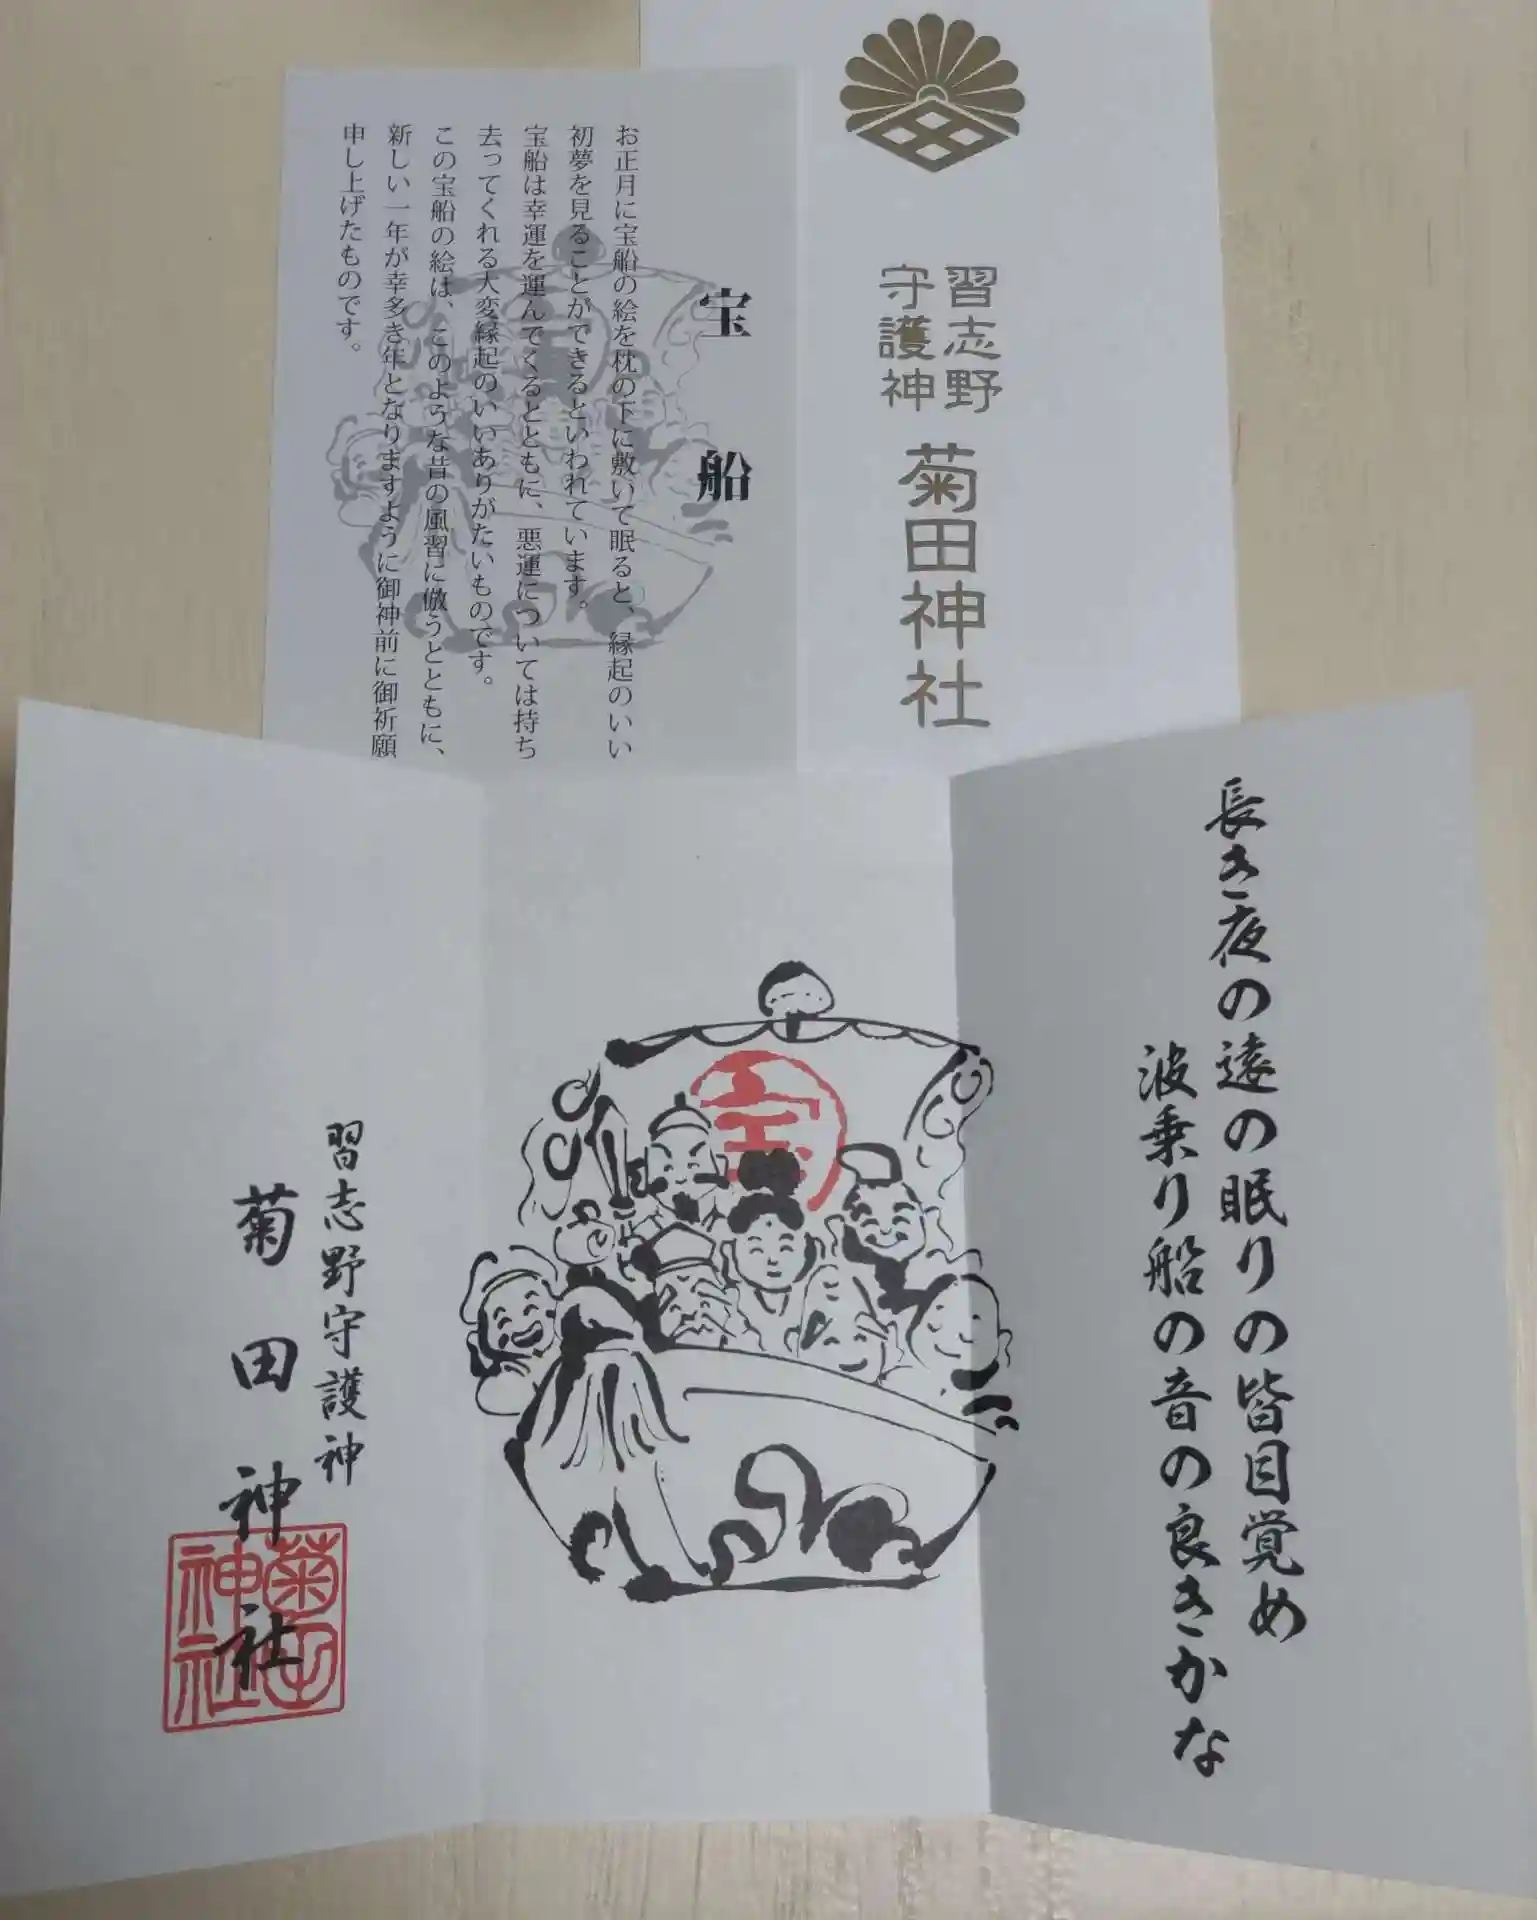 習志野
守護神
菊田神社
宝船
お正月に宝船の絵を枕の下に敷いて眠ると、縁起のいい
初夢を見ることができるといわれています。
宝船は幸運を運んでくるとともに、悪運については持ち
去ってくれる大変縁起のいいありがたいものです。
この宝船の絵は、このような昔の風習に倣うとともに、
新しい一年が幸多き年となりますように御神前に御祈願
申し上げたものです。
長き夜の遠の眠りの皆目覚め
波乗り船の音の良きかな
宝
習志野守護神
菊田神社
菊田
神社